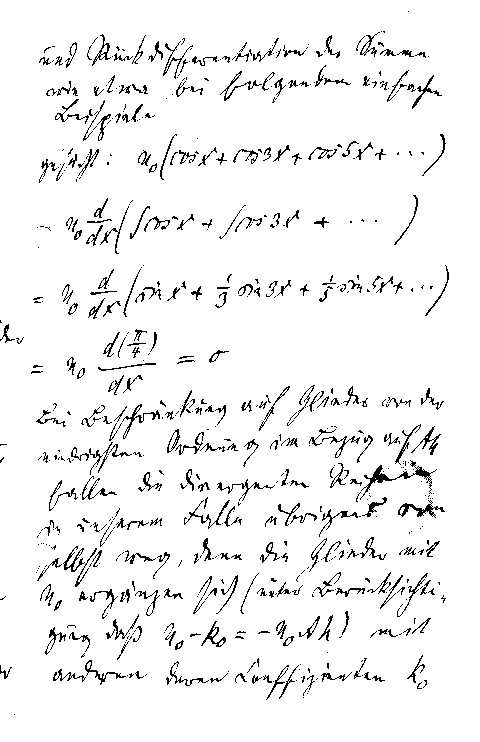 und Rückdifferentiation der Summe
wie etwa bei folgendem einfachen
Beispiele
gesucht: η₀(cos x + cos 3x + cos 5x + ···)
= η₀ d/dx (∫cos x + ∫cos 3x + ··· )
= η₀ d/dx (sin x + 1/3 sin 3x + 1/5 sin 5x + ···)
= η₀ d(π/4)/dx = 0
Bei Beschränkung auf Glieder von der
niedrigsten Ordnung im Bezug auf Δh
fallen die divergenten Reihen
in unserem Falle übrigens von
selbst weg, denn die Glieder mit
η₀ ergänzen sich (unter Berücksichti-
gung daß η₀ - k₀ = -η₀Δh) mit
anderen deren Coeffizienten k₀